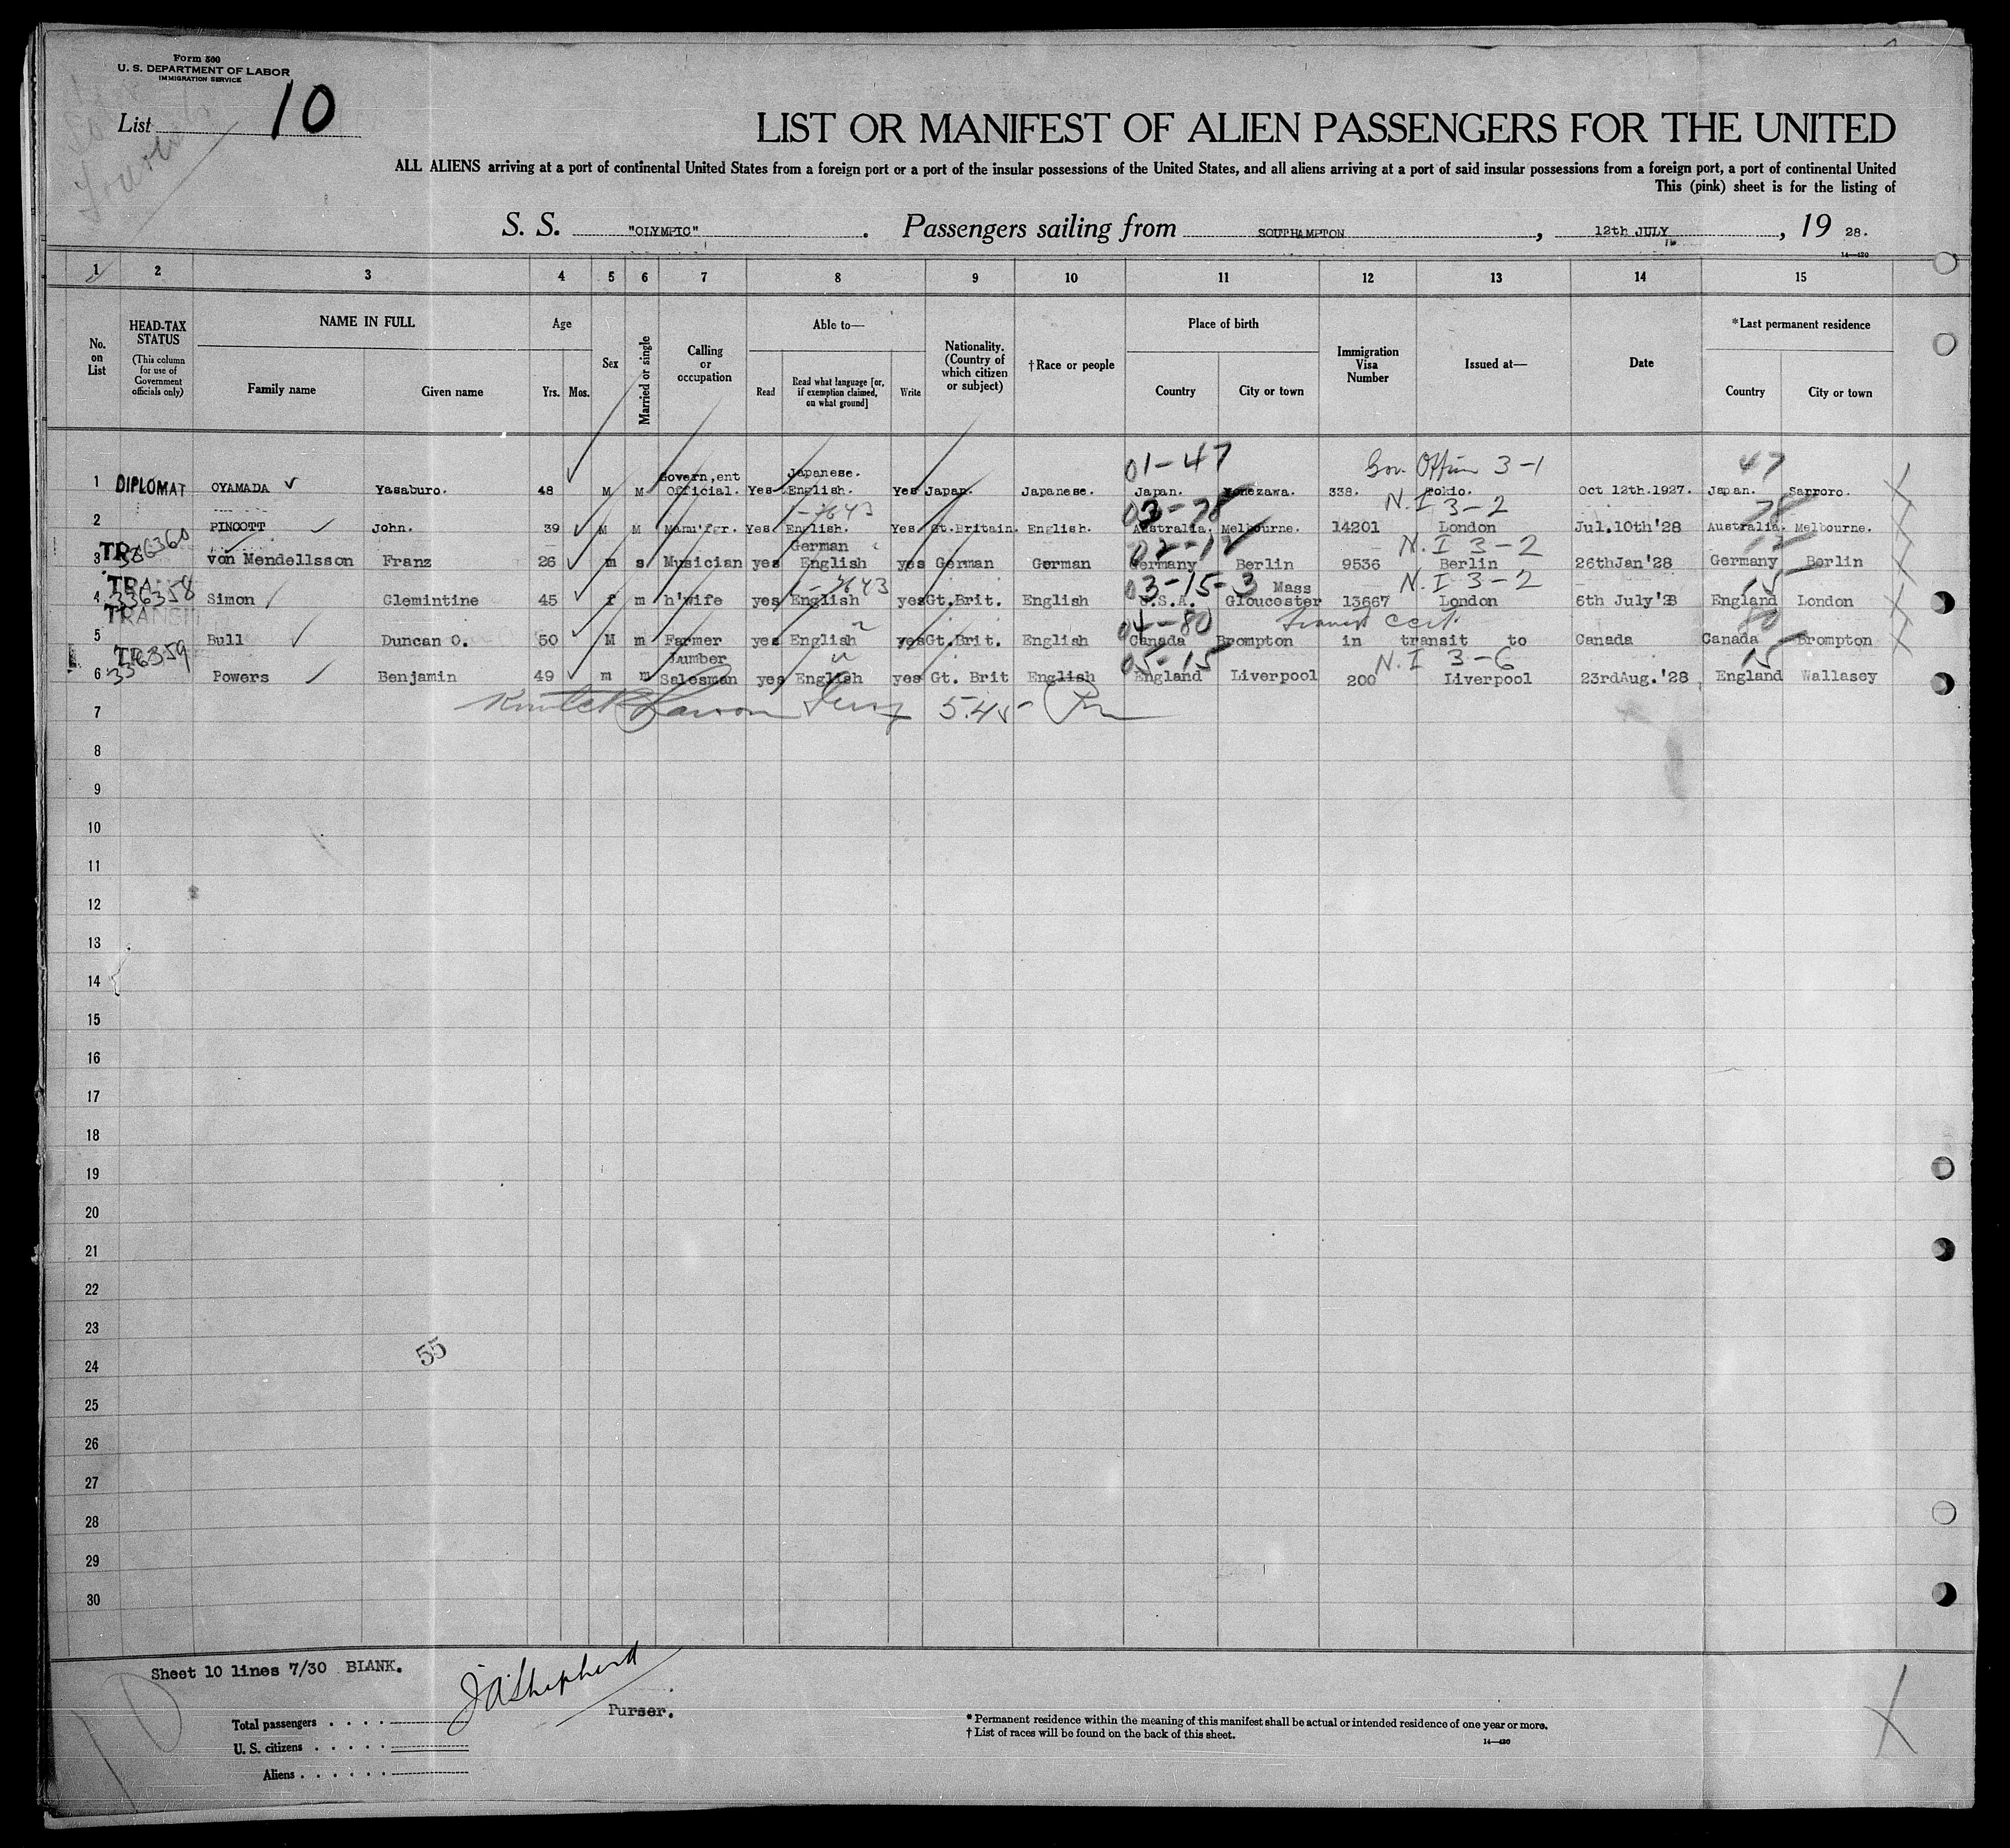 Form 500
U. S. DEPARTMENT OF LABOR
IMMIGRATION SERVICE
List 10
LIST OR MANIFEST OF ALIEN PASSENGERS FOR THE UNITED
ALL ALIENS arriving at a port of continental United States from a foreign port or a port of the insular possessions of the United States, and all aliens arriving at a port of said insular possessions from a foreign port, a port of continental United
This (pink) sheet is for the listing of
S. S. "OLYMPIC". Passengers sailing from SOUTHAMPTON, 12th JULY, 19 28.
14—420
1 2 3 4 5 6 7 8 9 10 11 12 13 14 15
No. on List
HEAD-TAX STATUS (This column for use of Government officials only)
NAME IN FULL
Family name
Given name
Age
Yrs. Mos.
Sex
Married or single
Calling or occupation
Able to—
Read
Read what language [or, if exemption claimed, on what ground]
Write
Nationality. (Country of which citizen or subject)
†Race or people
Place of birth
Country
City or town
Immigration Visa Number
Issued at—
Date
*Last permanent residence
Country
City or town
01-47 Gov. Office 3-1 47
1 DIPLOMAT OYAMADA Yasaburo. 48 M M Govern,ent Official. Yes Japanese. English. Yes Japan. Japanese. Japan. Yonezawa. 338. Tokio. Oct 12th.1927. Japan. Sapporo.
03-78 N.I 3-2 78
2 PINCOTT John. 39 M M Manu'fgr. Yes English. Yes. Gt.Britain. English. Australia. Melbourne. 14201 London Jul.10th'28 Australia. Melbourne.
02-12 N.I 3-2 12
3 TR 336360 von Mendellsson Franz 26 m s Musician yes German English yes German German Germany Berlin 9536 Berlin 26thJan'28 Germany Berlin
03-15-3 N.I 3-2 15
4 TRANSIT 336358 Simon Clemintine 45 f m h'wife yes English yes Gt.Brit. English U.S.A. Mass Gloucester 13667 London 6th July'28 England London
04-80 transit cert. 80
5 TRANSIT Bull Duncan O. 50 M m Farmer yes English yes Gt.Brit. English Canada Brompton in transit to Canada Canada Brompton
05-15 N.I 3-6 15
6 TR 336359 Powers Benjamin 49 m m Lumber Salesman yes English yes Gt. Brit English England Liverpool 200 Liverpool 23rdAug.'28 England Wallasey
7 5.45
8
9
10
11
12
13
14
15
16
17
18
19
20
21
22
23
55
24
25
26
27
28
29
30
Sheet 10 lines 7/30 BLANK.
J A Shepherd
Purser.
Total passengers
U. S. citizens
Aliens
10
* Permanent residence within the meaning of this manifest shall be actual or intended residence of one year or more.
† List of races will be found on the back of this sheet.
14—420